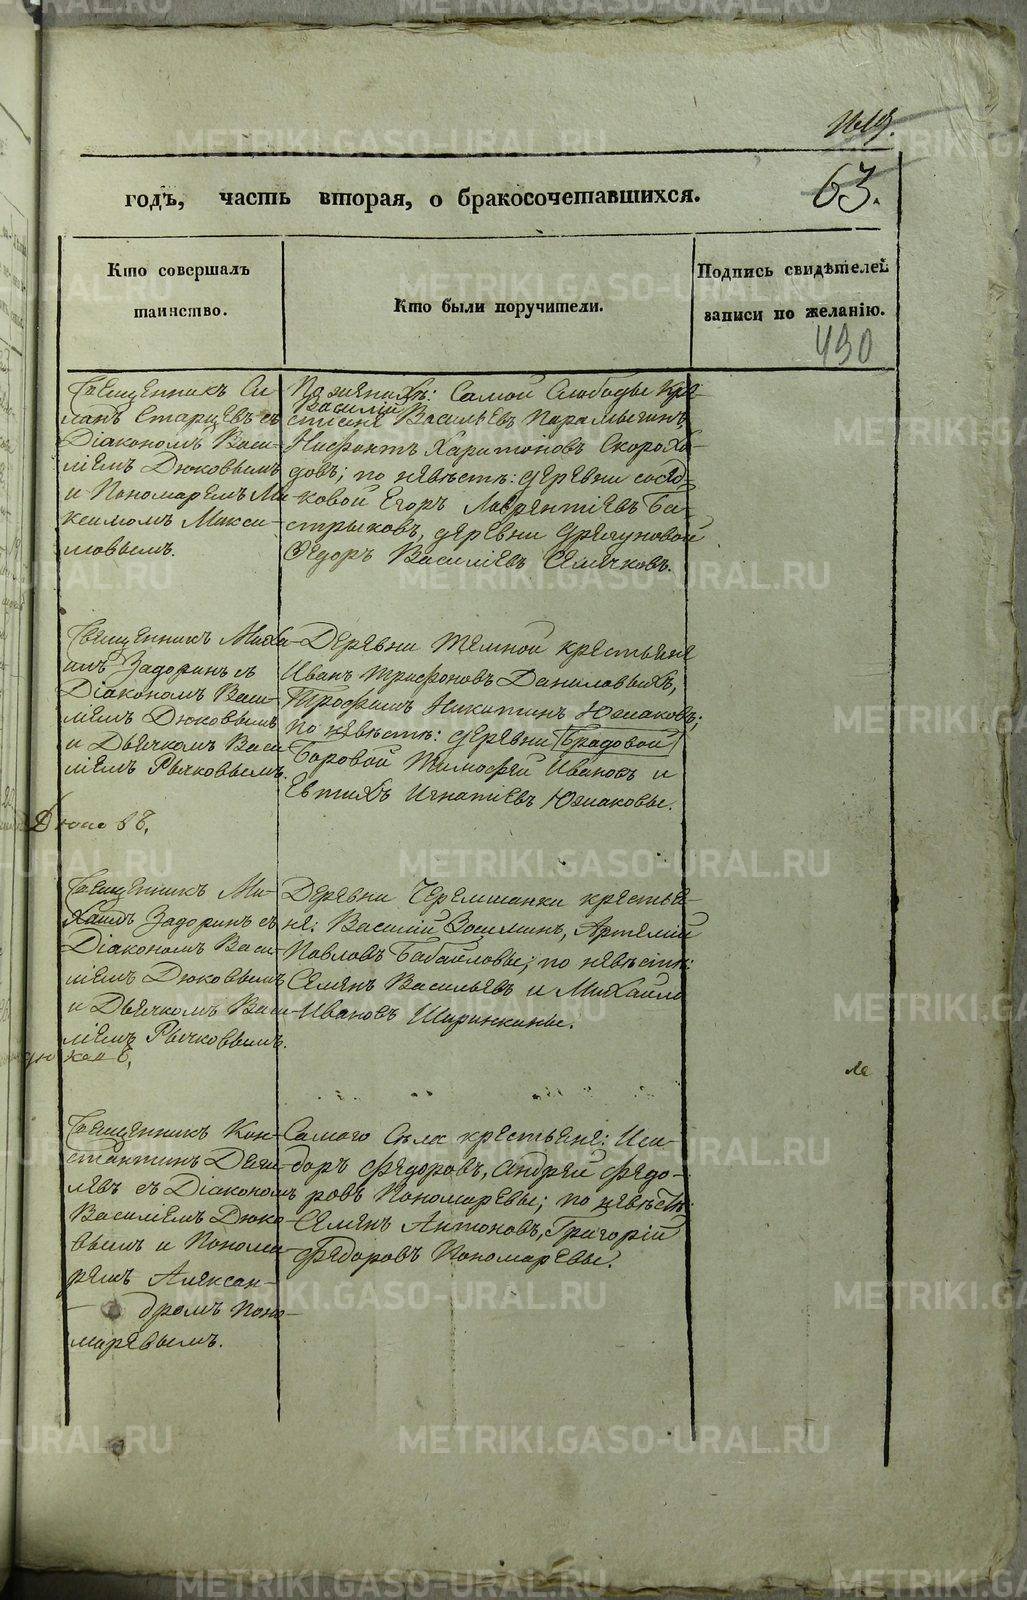 63.
годъ, часть вторая, о бракосочетавшихся.
Кто совершалъ
таинство.
Кто были поручители.
Подпись свидѣтелей
записи по желанію.
490
Священникъ Си-
манъ Старцевъ съ
Діакономъ Васи-
ліемъ Дюковымъ
и Пономаремъ Ма-
ксимомъ Макси-
мовымъ.
По женихѣ: Самой Слободы Кре-
Василій
стьяне Васильевъ Парамыгинъ,
Харитоновъ Скорохо-
довъ; по невѣстѣ: деревни
Егоръ Лаврентіевъ Ба-
стрыковъ, деревни
Ѳедоръ Василіевъ Семячковъ.
Священникъ Миха-
илъ Задоринъ съ
Діакономъ Васи-
ліемъ Дюковымъ
и Дьячкомъ Васи-
ліемъ Рычковымъ.
Дюковъ,
Деревни Темной крестьяне
Иванъ Трифоновъ Даниловыхъ,
Трофимъ Никитинъ Южаковъ;
по невѣстѣ: деревни
Боровой Тимофей Ивановъ и
Евтихъ Игнатіевъ Южаковы.
Священникъ Ми-
хаилъ Задоринъ съ
Діакономъ Васи-
ліемъ Дюковымъ
и Дьячкомъ Васи-
ліемъ Рычковымъ.
Деревни Черемшанки крестья-
не: Василій Зосиминъ, Артемій
Павловъ Бабайловы; по невѣстѣ:
Семенъ Васильевъ и Михайло
Ивановъ Ширинкины.
Священникъ Кон-
стантинъ
съ Діакономъ
Василіемъ Дюко-
вымъ и Понома-
ремъ Алексан-
дромъ Поно-
маревымъ.
Самого Села крестьяне: Иси-
доръ Федоровъ, Андрей Федо-
ровъ Пономаревы; по невѣстѣ:
Семенъ Антоновъ, Григорій
Федоровъ Пономаревы.
METRIKI.GASO-URAL.RU